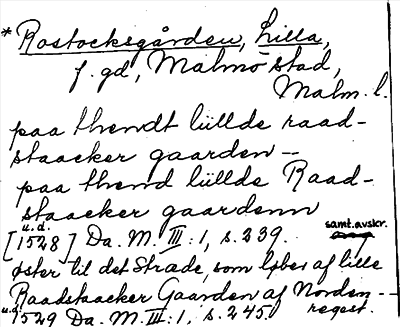 * Rostocksgården, Lilla,
f. gd, Malmö stad,
Malm. l.
paa thendt liillde raad-
staacker gaarden –
paa thend liillde Raad-
staacker gaardenn
u.d.
[1528] Da. M. III: 1, s. 239. samt. avskr.
øster til det Stræde, som løber af lille
Raadstaacker Gaarden af Norden --
u.d. 1529 Da. M. III: 1, s. 245. regest.